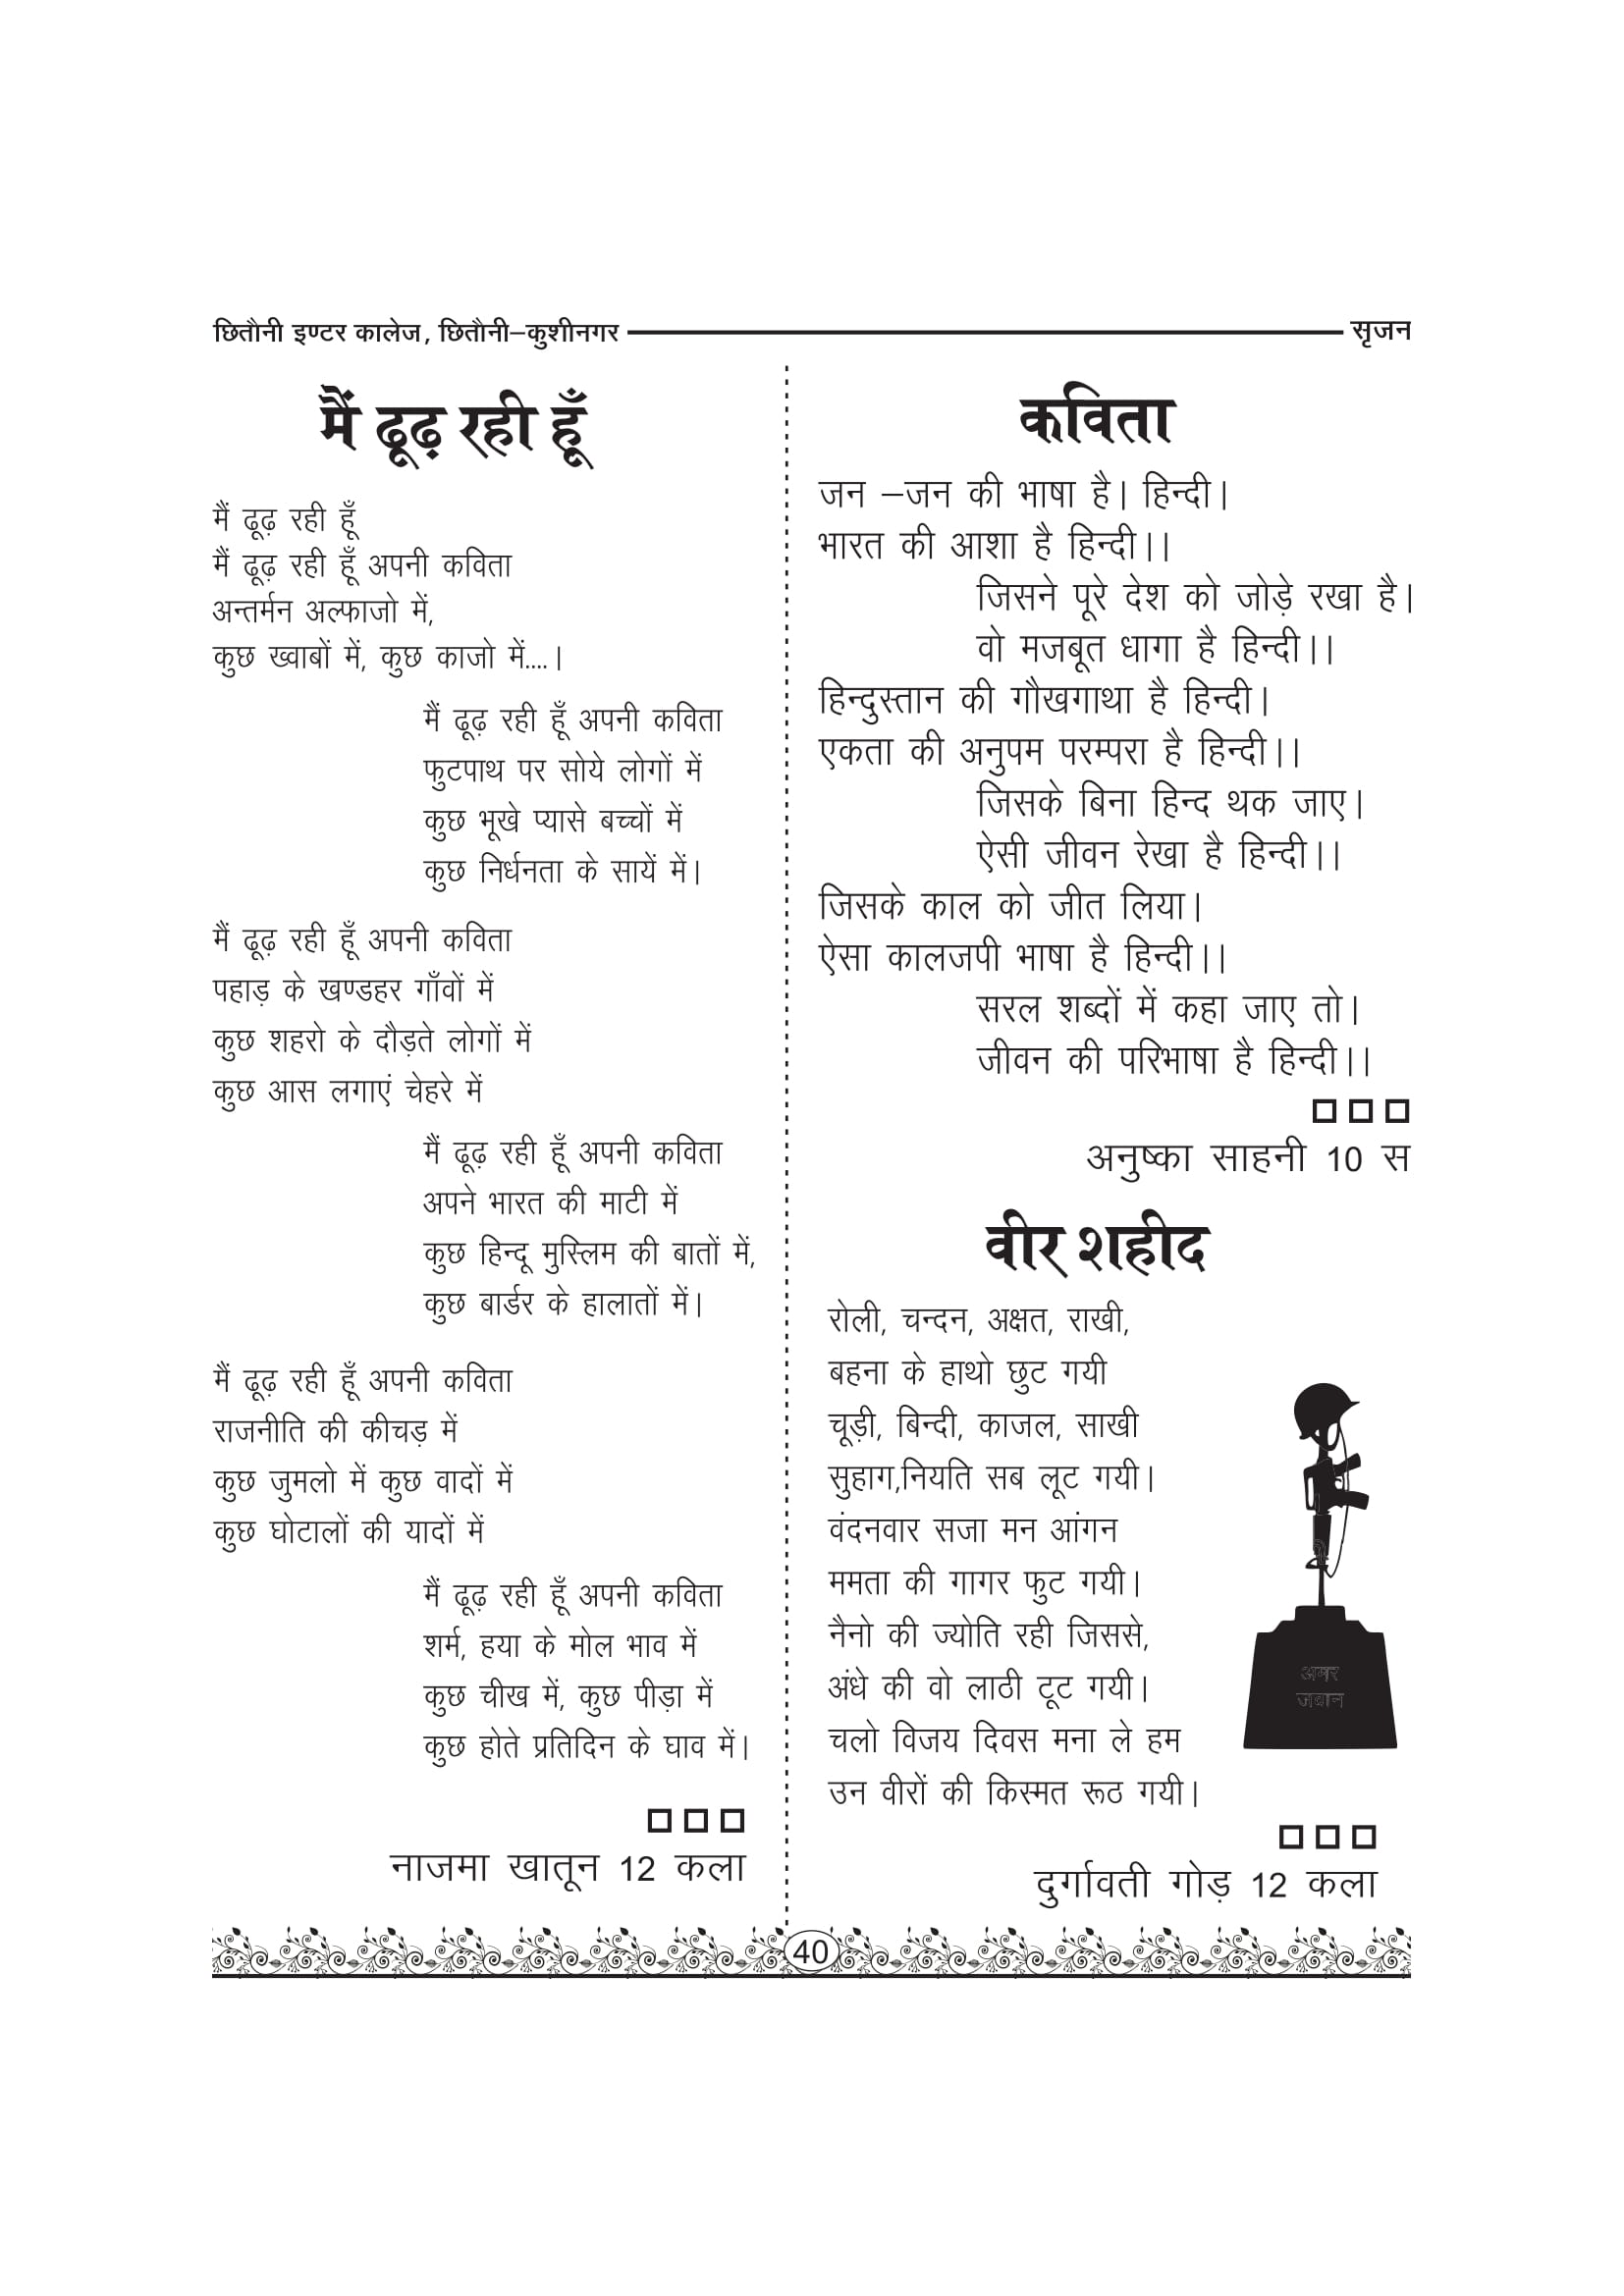 छितौनी इण्टर कालेज, छितौनी–कुशीनगर
सृजन
मैं ढूढ़ रही हूँ
मैं ढूढ़ रही हूँ
मैं ढूढ़ रही हूँ अपनी कविता
अन्तर्मन अल्फाजो में,
कुछ ख्वाबों में, कुछ काजो में....।
मैं ढूढ़ रही हूँ अपनी कविता
फुटपाथ पर सोये लोगों में
कुछ भूखे प्यासे बच्चों में
कुछ निर्धनता के सायें में।
मैं ढूढ़ रही हूँ अपनी कविता
पहाड़ के खण्डहर गाँवों में
कुछ शहरो के दौड़ते लोगों में
कुछ आस लगाएं चेहरे में
मैं ढूढ़ रही हूँ अपनी कविता
अपने भारत की माटी में
कुछ हिन्दू मुस्लिम की बातों में,
कुछ बार्डर के हालातों में।
मैं ढूढ़ रही हूँ अपनी कविता
राजनीति की कीचड़ में
कुछ जुमलो में कुछ वादों में
कुछ घोटालों की यादों में
मैं ढूढ़ रही हूँ अपनी कविता
शर्म, हया के मोल भाव में
कुछ चीख में, कुछ पीड़ा में
कुछ होते प्रतिदिन के घाव में।
नाजमा खातून 12 कला
कविता
जन –जन की भाषा है। हिन्दी।
भारत की आशा है हिन्दी।।
जिसने पूरे देश को जोड़े रखा है।
वो मजबूत धागा है हिन्दी।।
हिन्दुस्तान की गौखगाथा है हिन्दी।
एकता की अनुपम परम्परा है हिन्दी।।
जिसके बिना हिन्द थक जाए।
ऐसी जीवन रेखा है हिन्दी।।
जिसके काल को जीत लिया।
ऐसा कालजपी भाषा है हिन्दी।।
सरल शब्दों में कहा जाए तो।
जीवन की परिभाषा है हिन्दी।।
अनुष्का साहनी 10 स
वीर शहीद
रोली, चन्दन, अक्षत, राखी,
बहना के हाथो छुट गयी
चूड़ी, बिन्दी, काजल, साखी
सुहाग,नियति सब लूट गयी।
वंदनवार सजा मन आंगन
ममता की गागर फुट गयी।
नैनो की ज्योति रही जिससे,
अंधे की वो लाठी टूट गयी।
चलो विजय दिवस मना ले हम
उन वीरों की किस्मत रूठ गयी।
अमर
जवान
दुर्गावती गोड़ 12 कला
40